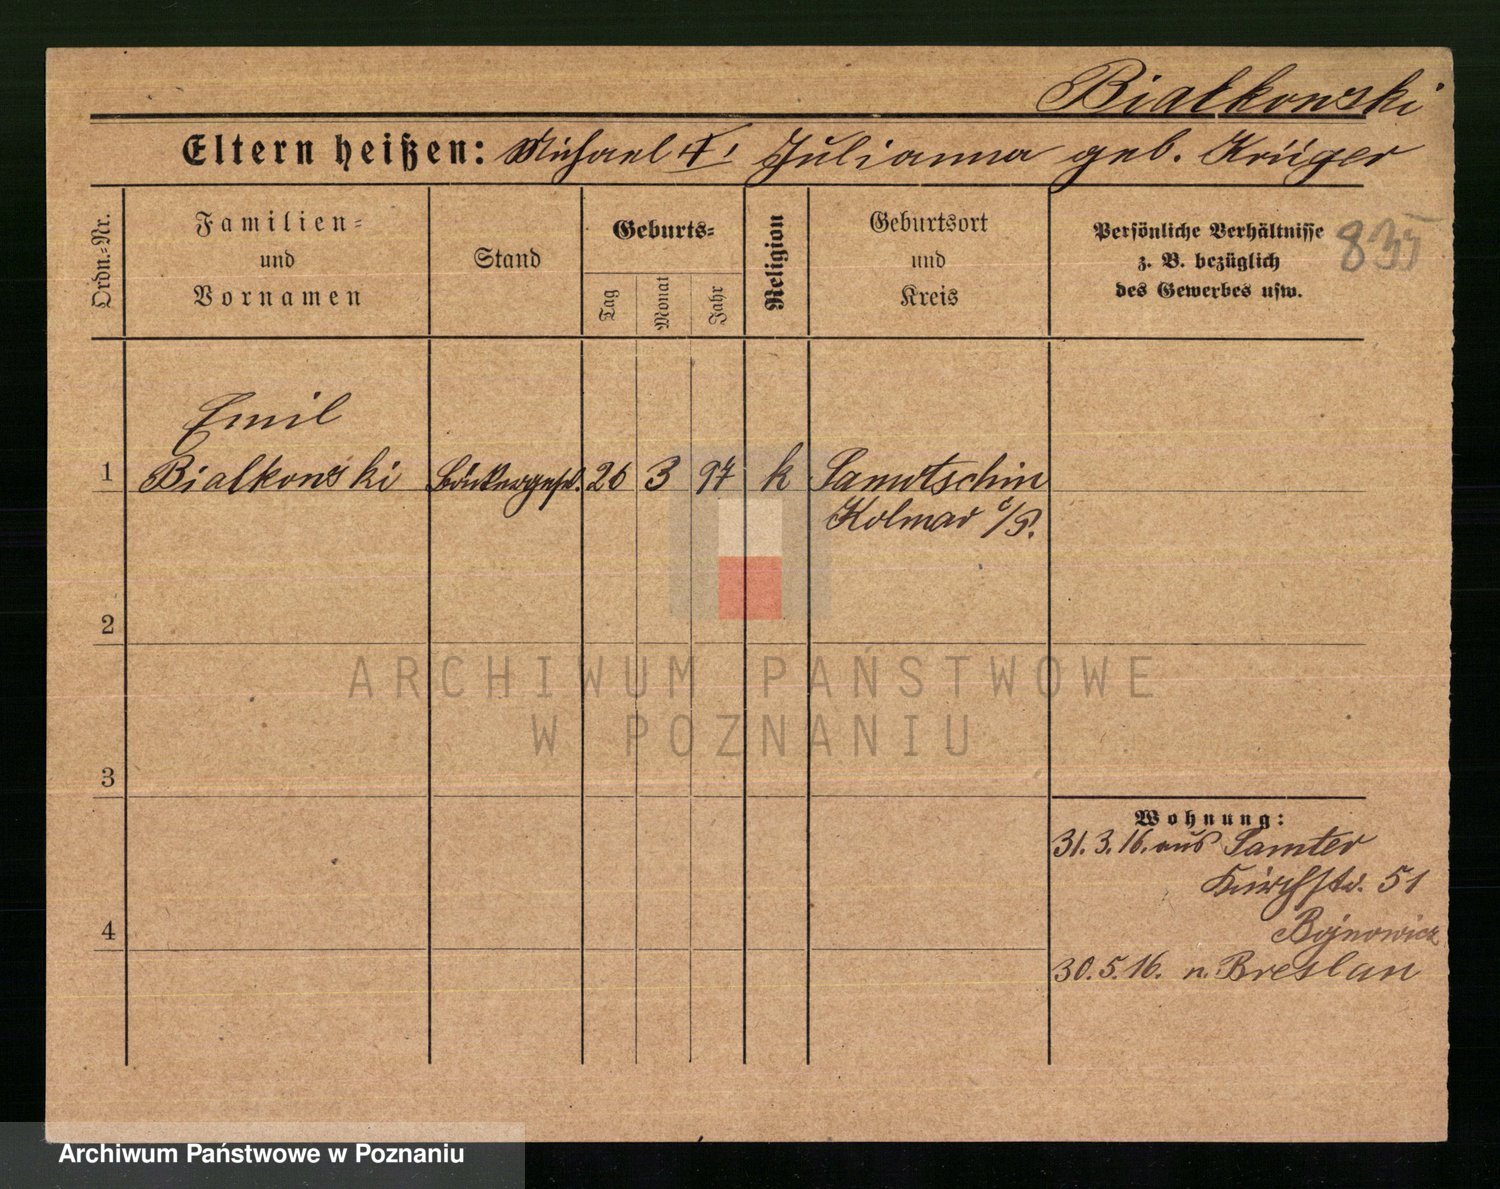 Białkowski
Eltern heißen: Michael †, Julianna geb. Krüger
Ordn.-Nr.
Familien-
und
Vornamen
Stand
Geburts-
Tag
Monat
Jahr
Religion
Geburtsort
und
Kreis
Persönliche Verhältnisse
z. B. bezüglich
des Gewerbes usw.
835
Emil
1 Bialkowski Bäckergesel. 26 3 97 k Samotschin
Kolmar i/P.
2
ARCHIWUM PAŃSTWOWE
W POZNANIU
3
Wohnung:
31.3.16. aus Samter
51
4
30.5.16. n. Breslau
Archiwum Państwowe w Poznaniu